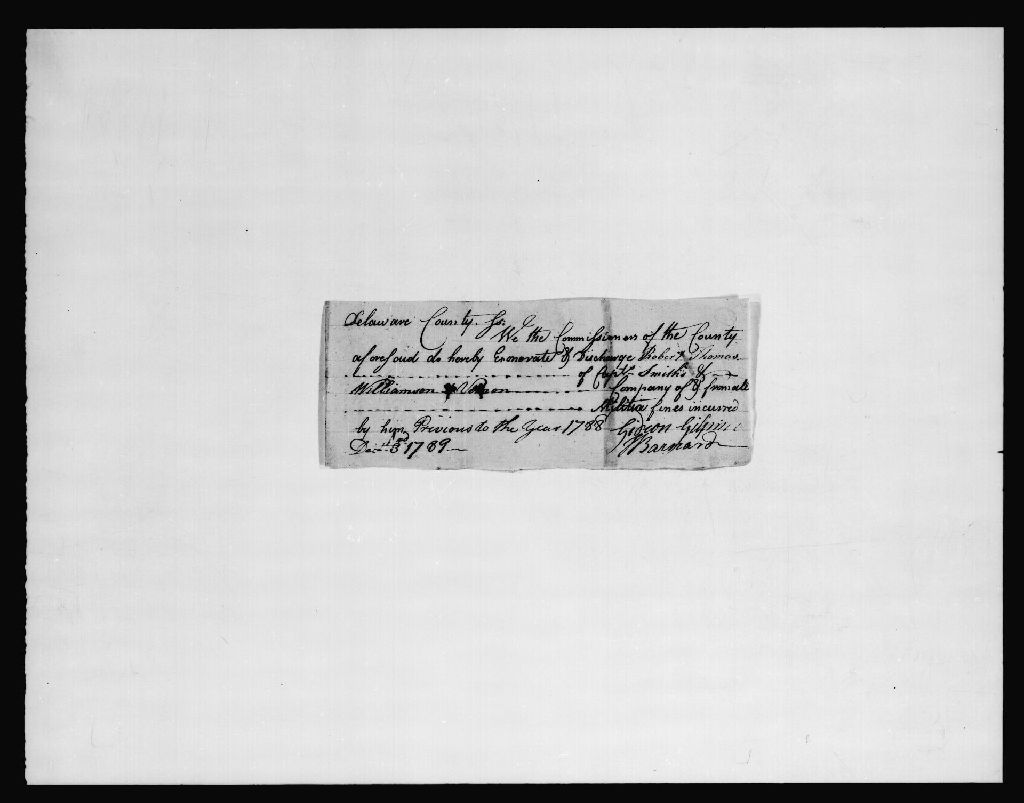 Delaware County. Ss.
We the Commissioners of the County
aforesaid do hereby Exonorate & Discharge Robert Thomas
of Captn. Smith's &
Williamson & Vernon Company of
Militia fines incurred
by him Previous to the Year 1788 Gideon Gilpin
Decr. 3rd 1789 Barnard